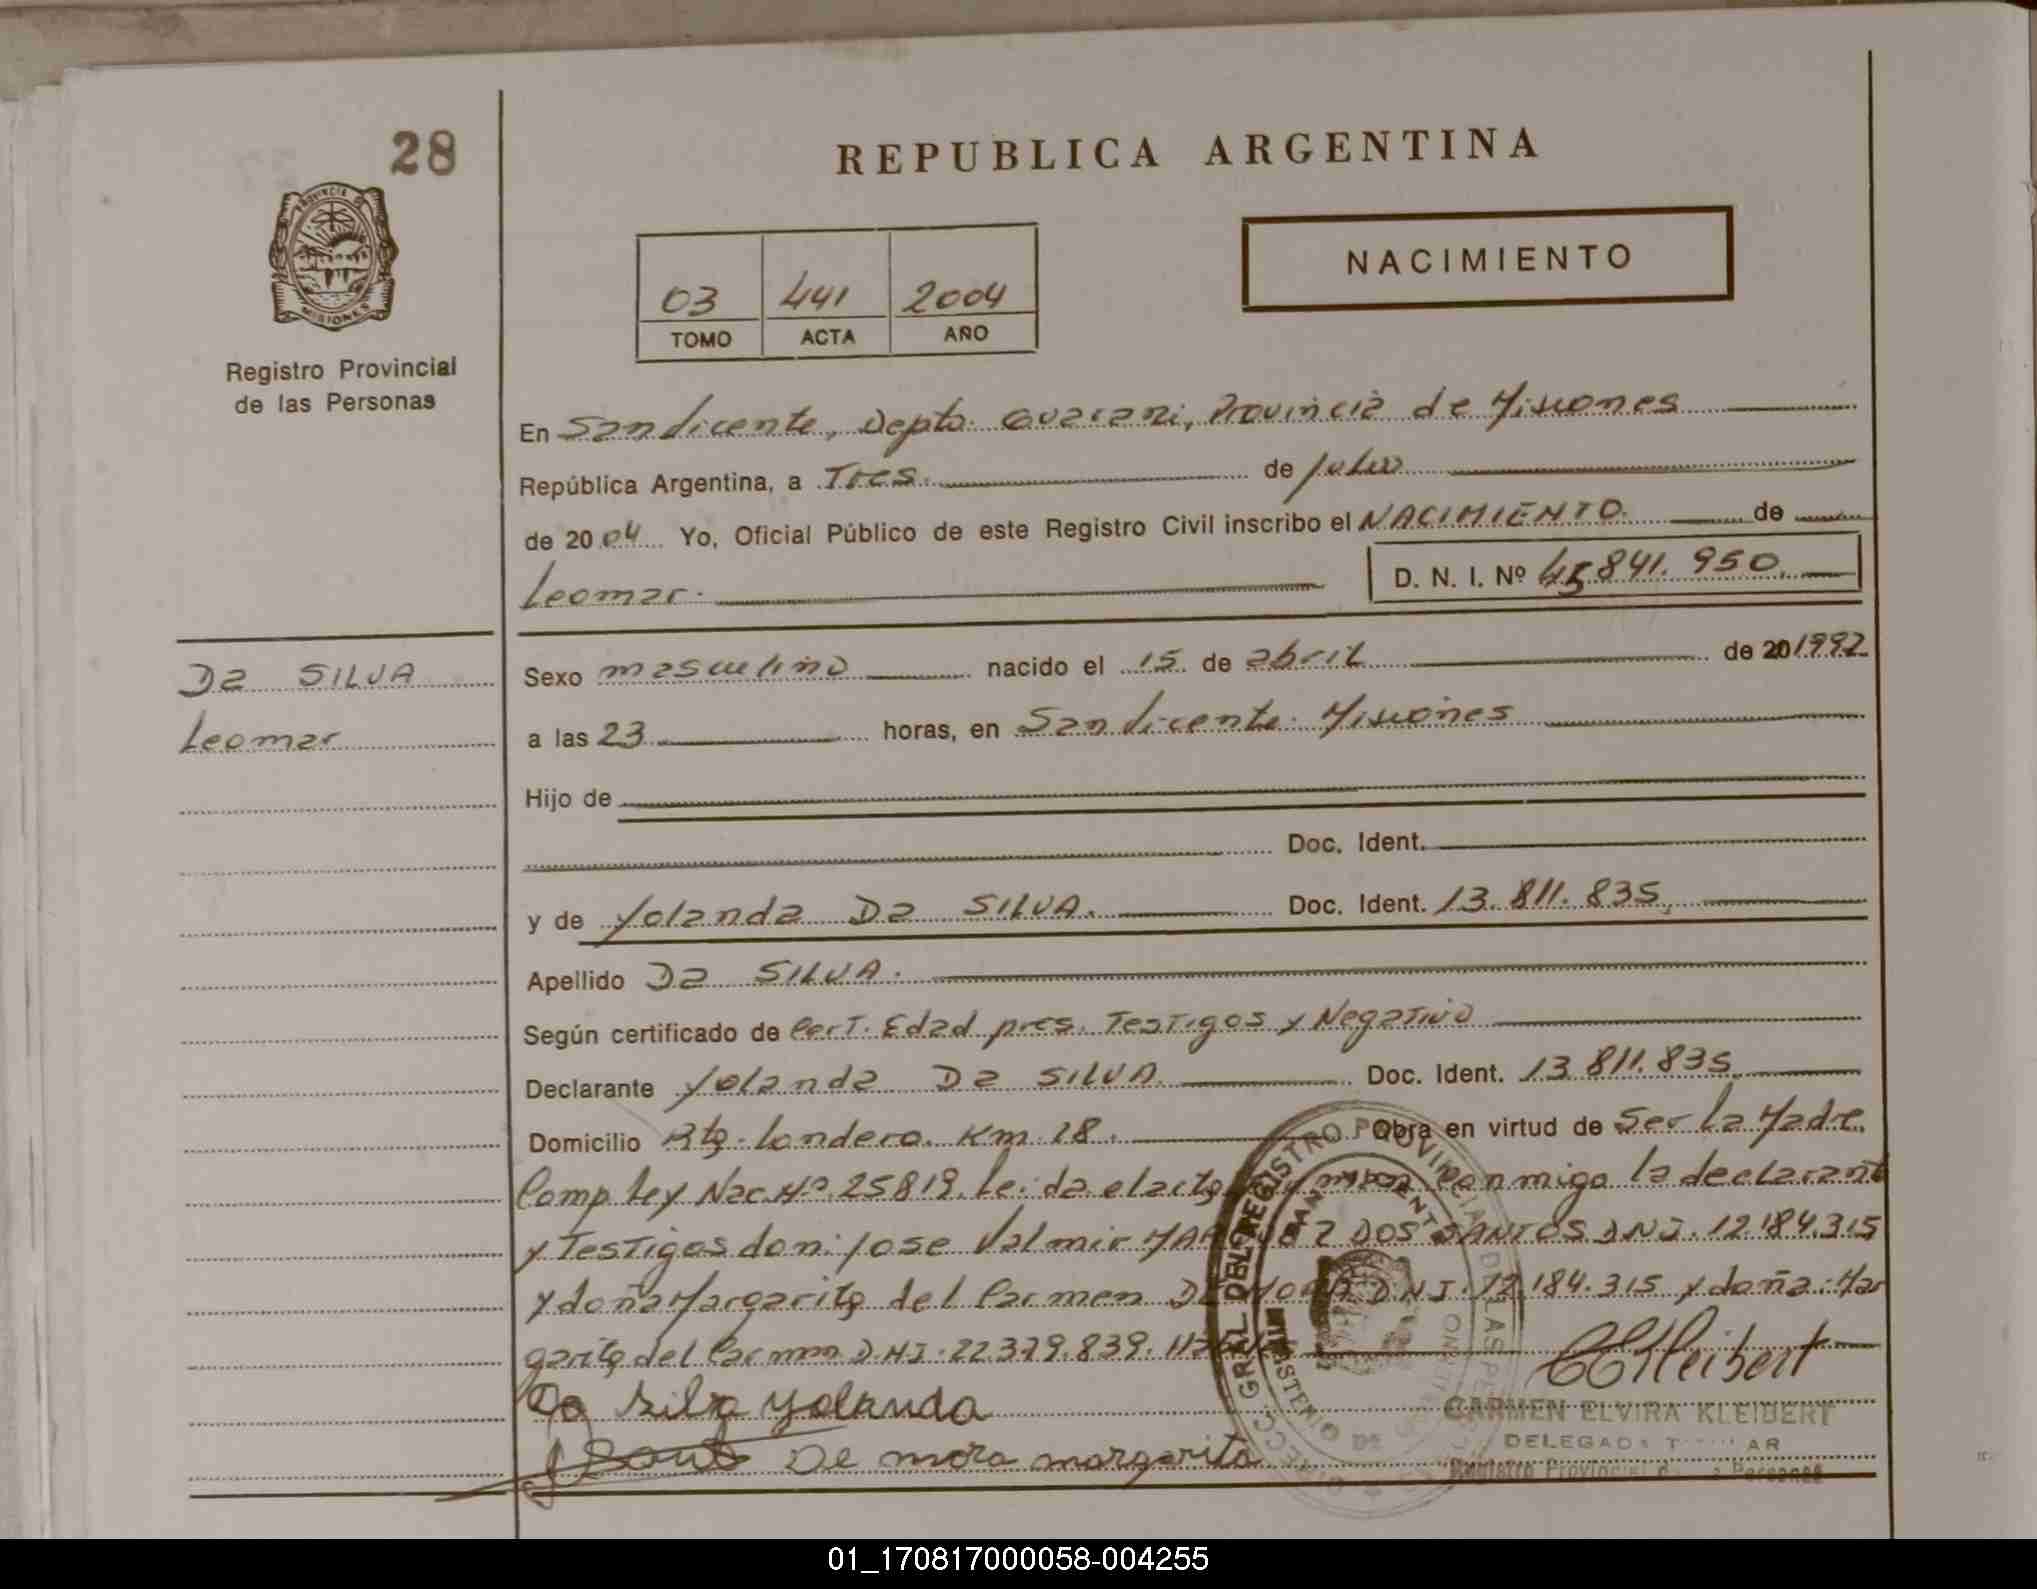 28
REPUBLICA ARGENTINA
PROVINCIA DE
MISIONES
Registro Provincial
de las Personas
03 441 2004
TOMO ACTA AÑO
NACIMIENTO
En San Vicente, Depto. Guarani, Provincia de Misiones
República Argentina, a Tres. de Julio
de 2004 Yo, Oficial Público de este Registro Civil inscribo el NACIMIENTO. de
Leomar. D. N. I. Nº 45.841.950.
DA SILVA
Leomar
Sexo masculino nacido el 15 de abril de 20 1992
a las 23 horas, en San Vicente. Misiones
Hijo de
Doc. Ident.
y de Yolanda DA SILVA. Doc. Ident. 13.811.835.
Apellido DA SILVA.
Según certificado de Cert. Edad pres. Testigos y Negativo
Declarante Yolanda DA SILVA. Doc. Ident. 13.811.835.
Domicilio Londero. Km 18. Obra en virtud de Ser la Madre.
Comp Ley Nac. Nº 25819. Leida el acta conmigo la declarant
y Testigos don: Jose Valmir DOS SANTOS D.N.I. 12.184.315
y doña Margarita del Carmen DE MORA D.N.I. 12.184.315 y doña: Mar
garita del Carmen D.N.I. 22.379.839.
Da Silva Yolanda
De mora margarita
CKleibert
CARMEN ELVIRA KLEIBERT
DELEGADA
Registro Provincial
01_170817000058-004255